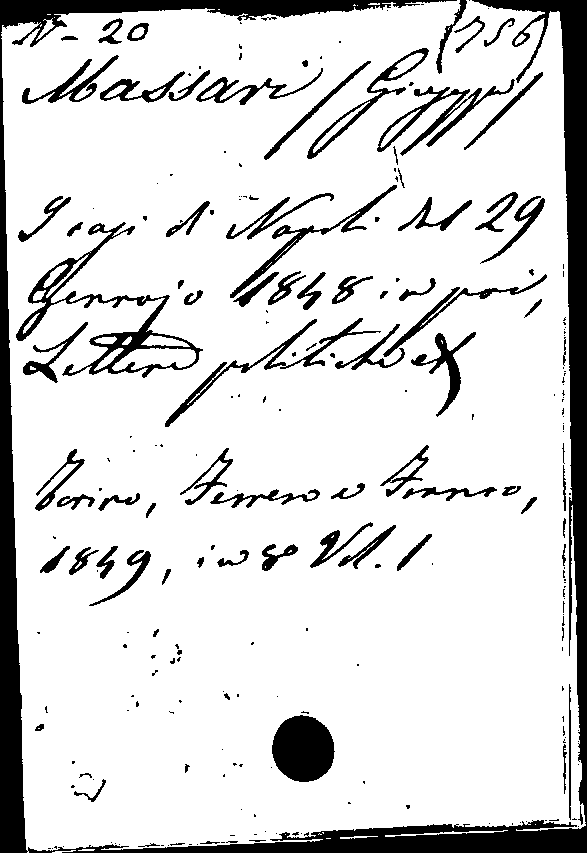 N- 20 (756)
Massari /Giuseppe/
I casi di Napoli dal 29
Gennajo 1848 in poi,
Lettere politiche
Torino, Ferrero e Franco,
1849, in 8° Vol. 1